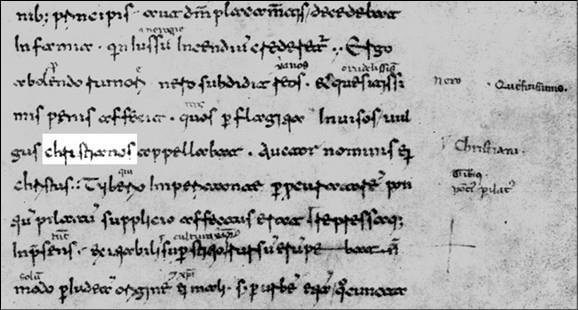 nib; principis · aut dm placamtis decedebat
Infamia · Iussu Incendiu crederet · Ergo
abolendo rumori nero subdidit reos · quesitissi
mis penis affecit · quos p flagitia Invisos vul
gus christianos appellabat · Auctor nominis ei
christus · Tiberio Imperitante p pcuratore pon
pilatu supplicio affectus erat repressaq;
Inpsens · exitiabilis supstitio rursu erupe bat n
modo p Iudea origine ei mali · s p urbe
nero · Quesitissimis.
Christiani.